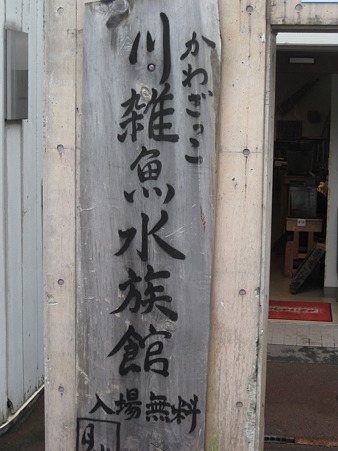 かわざっこ
川雑魚水族館
入場無料